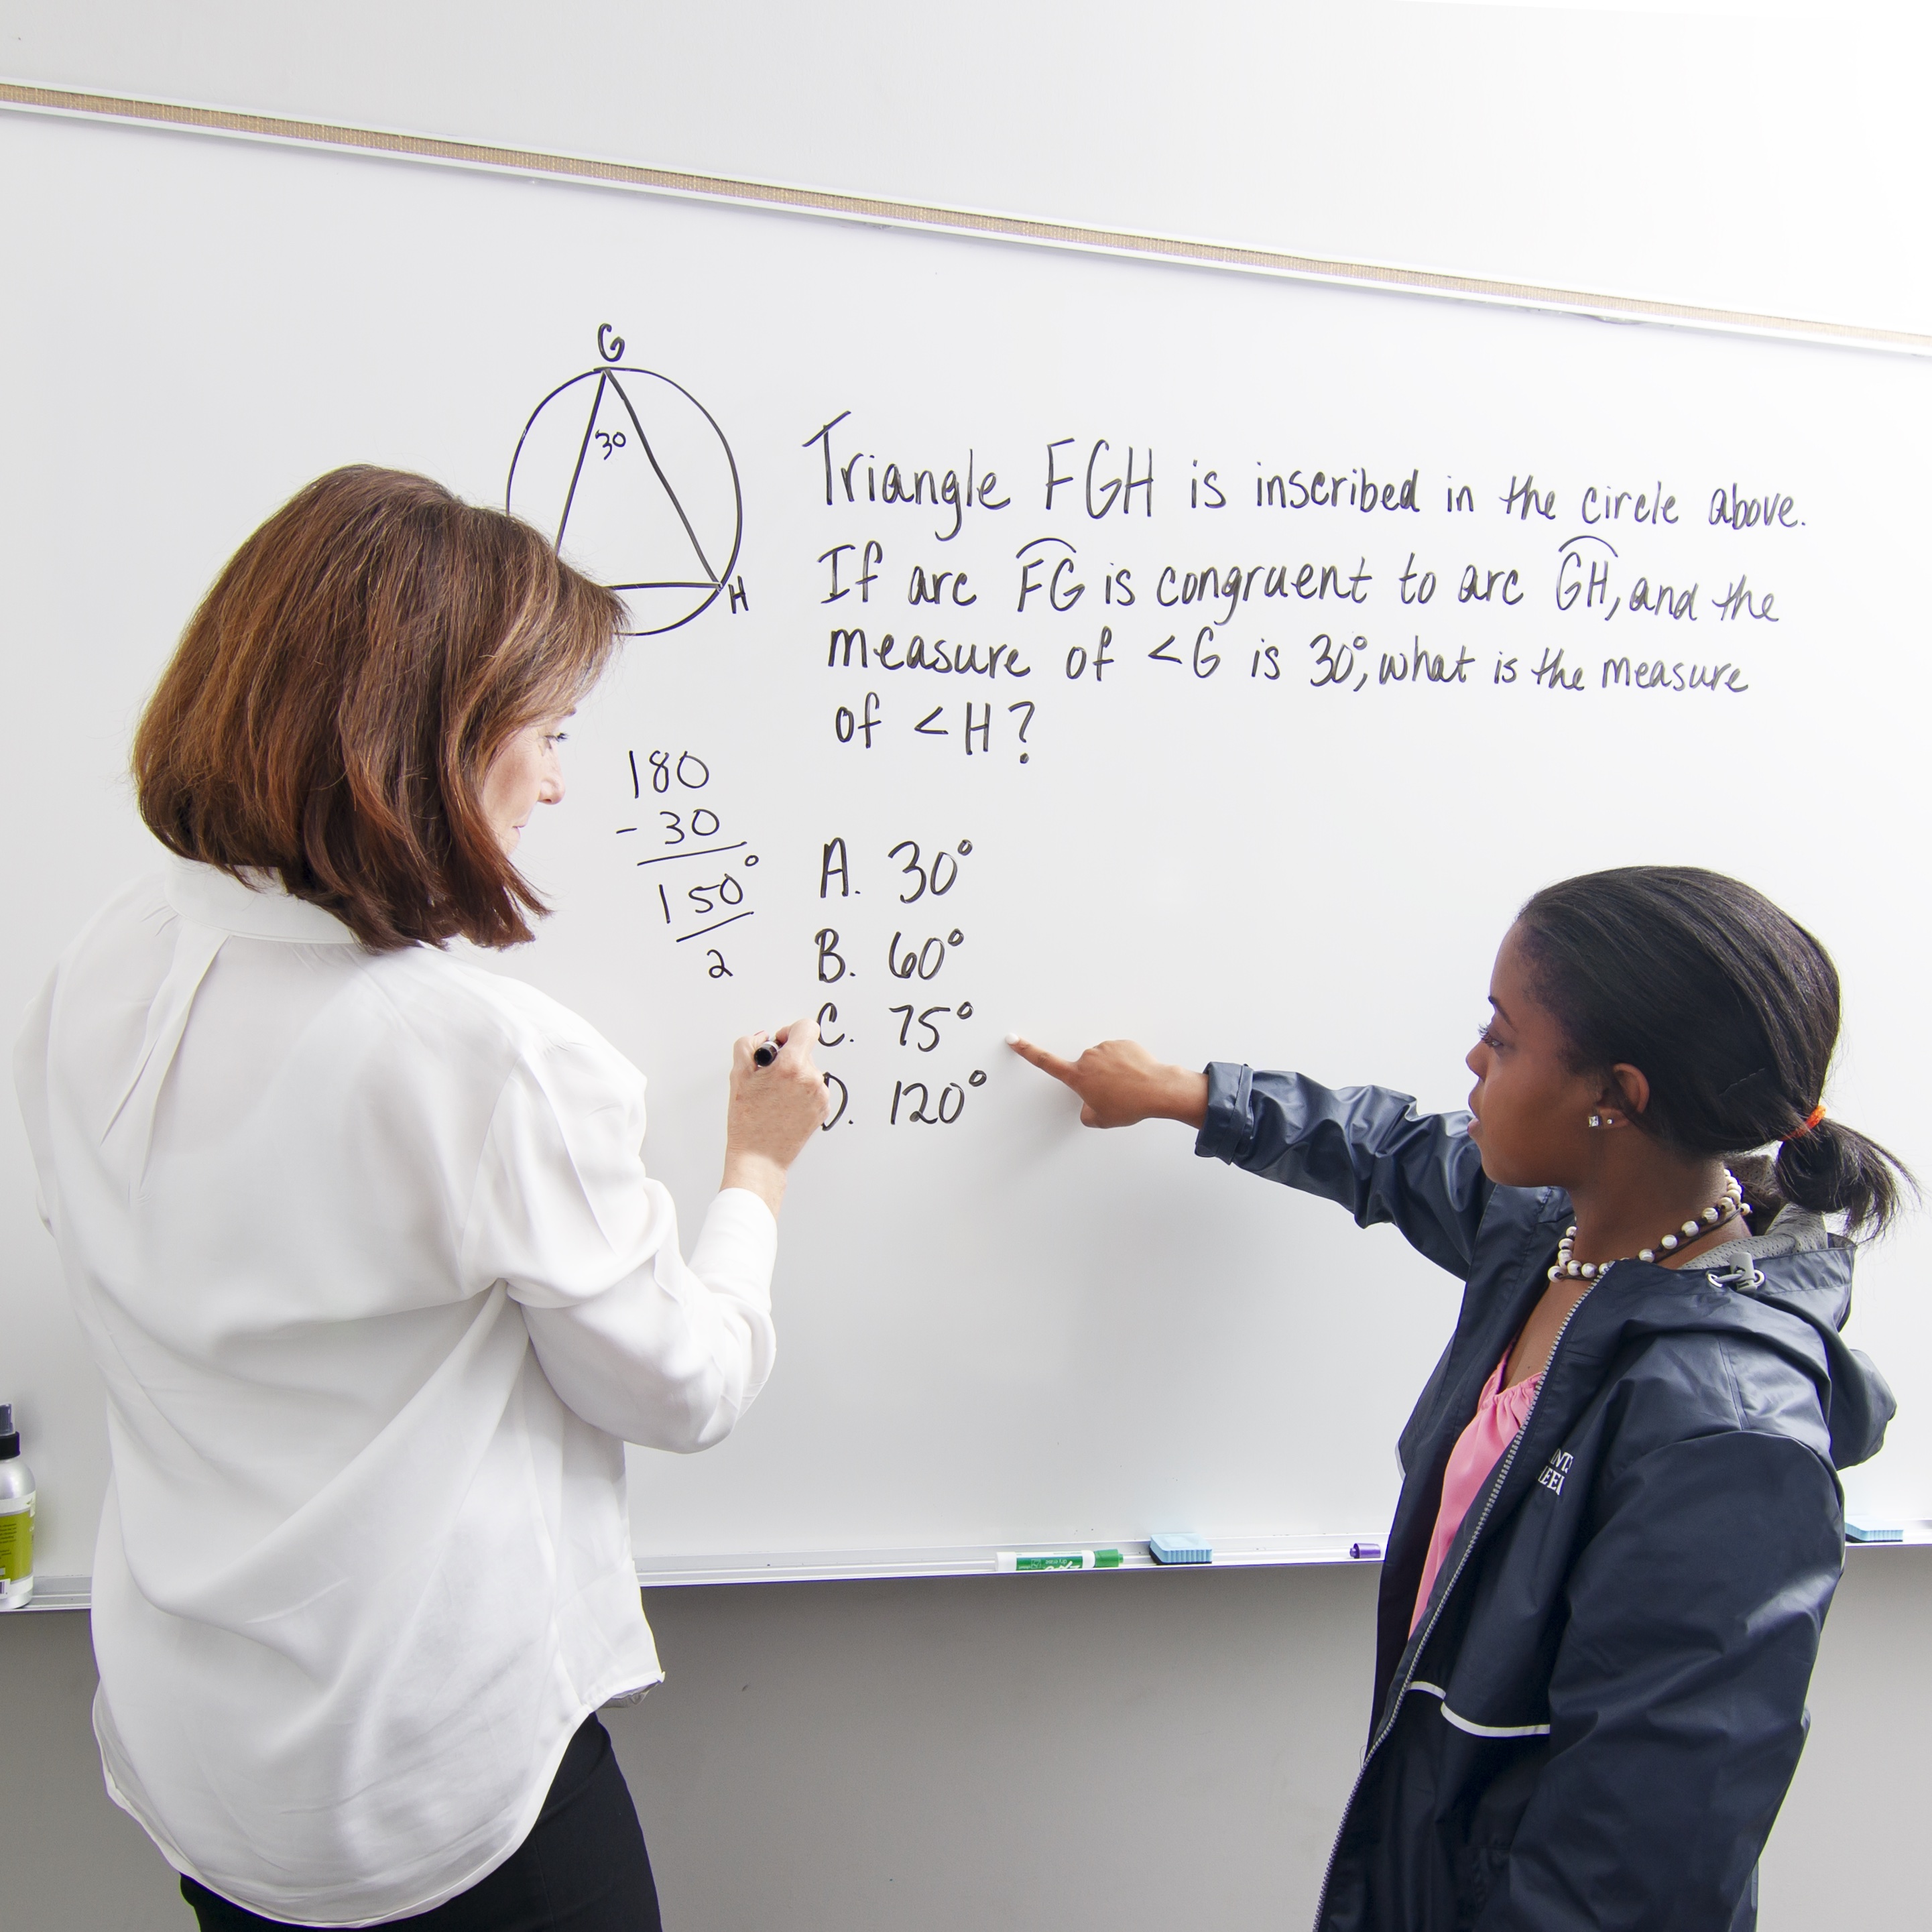 G
30
H
Triangle FGH is inscribed in the circle above.
If arc FG is congruent to arc GH, and the
measure of <G is 30°, what is the measure
of <H?
180
- 30
150°
2
A. 30°
B. 60°
C. 75°
D. 120°